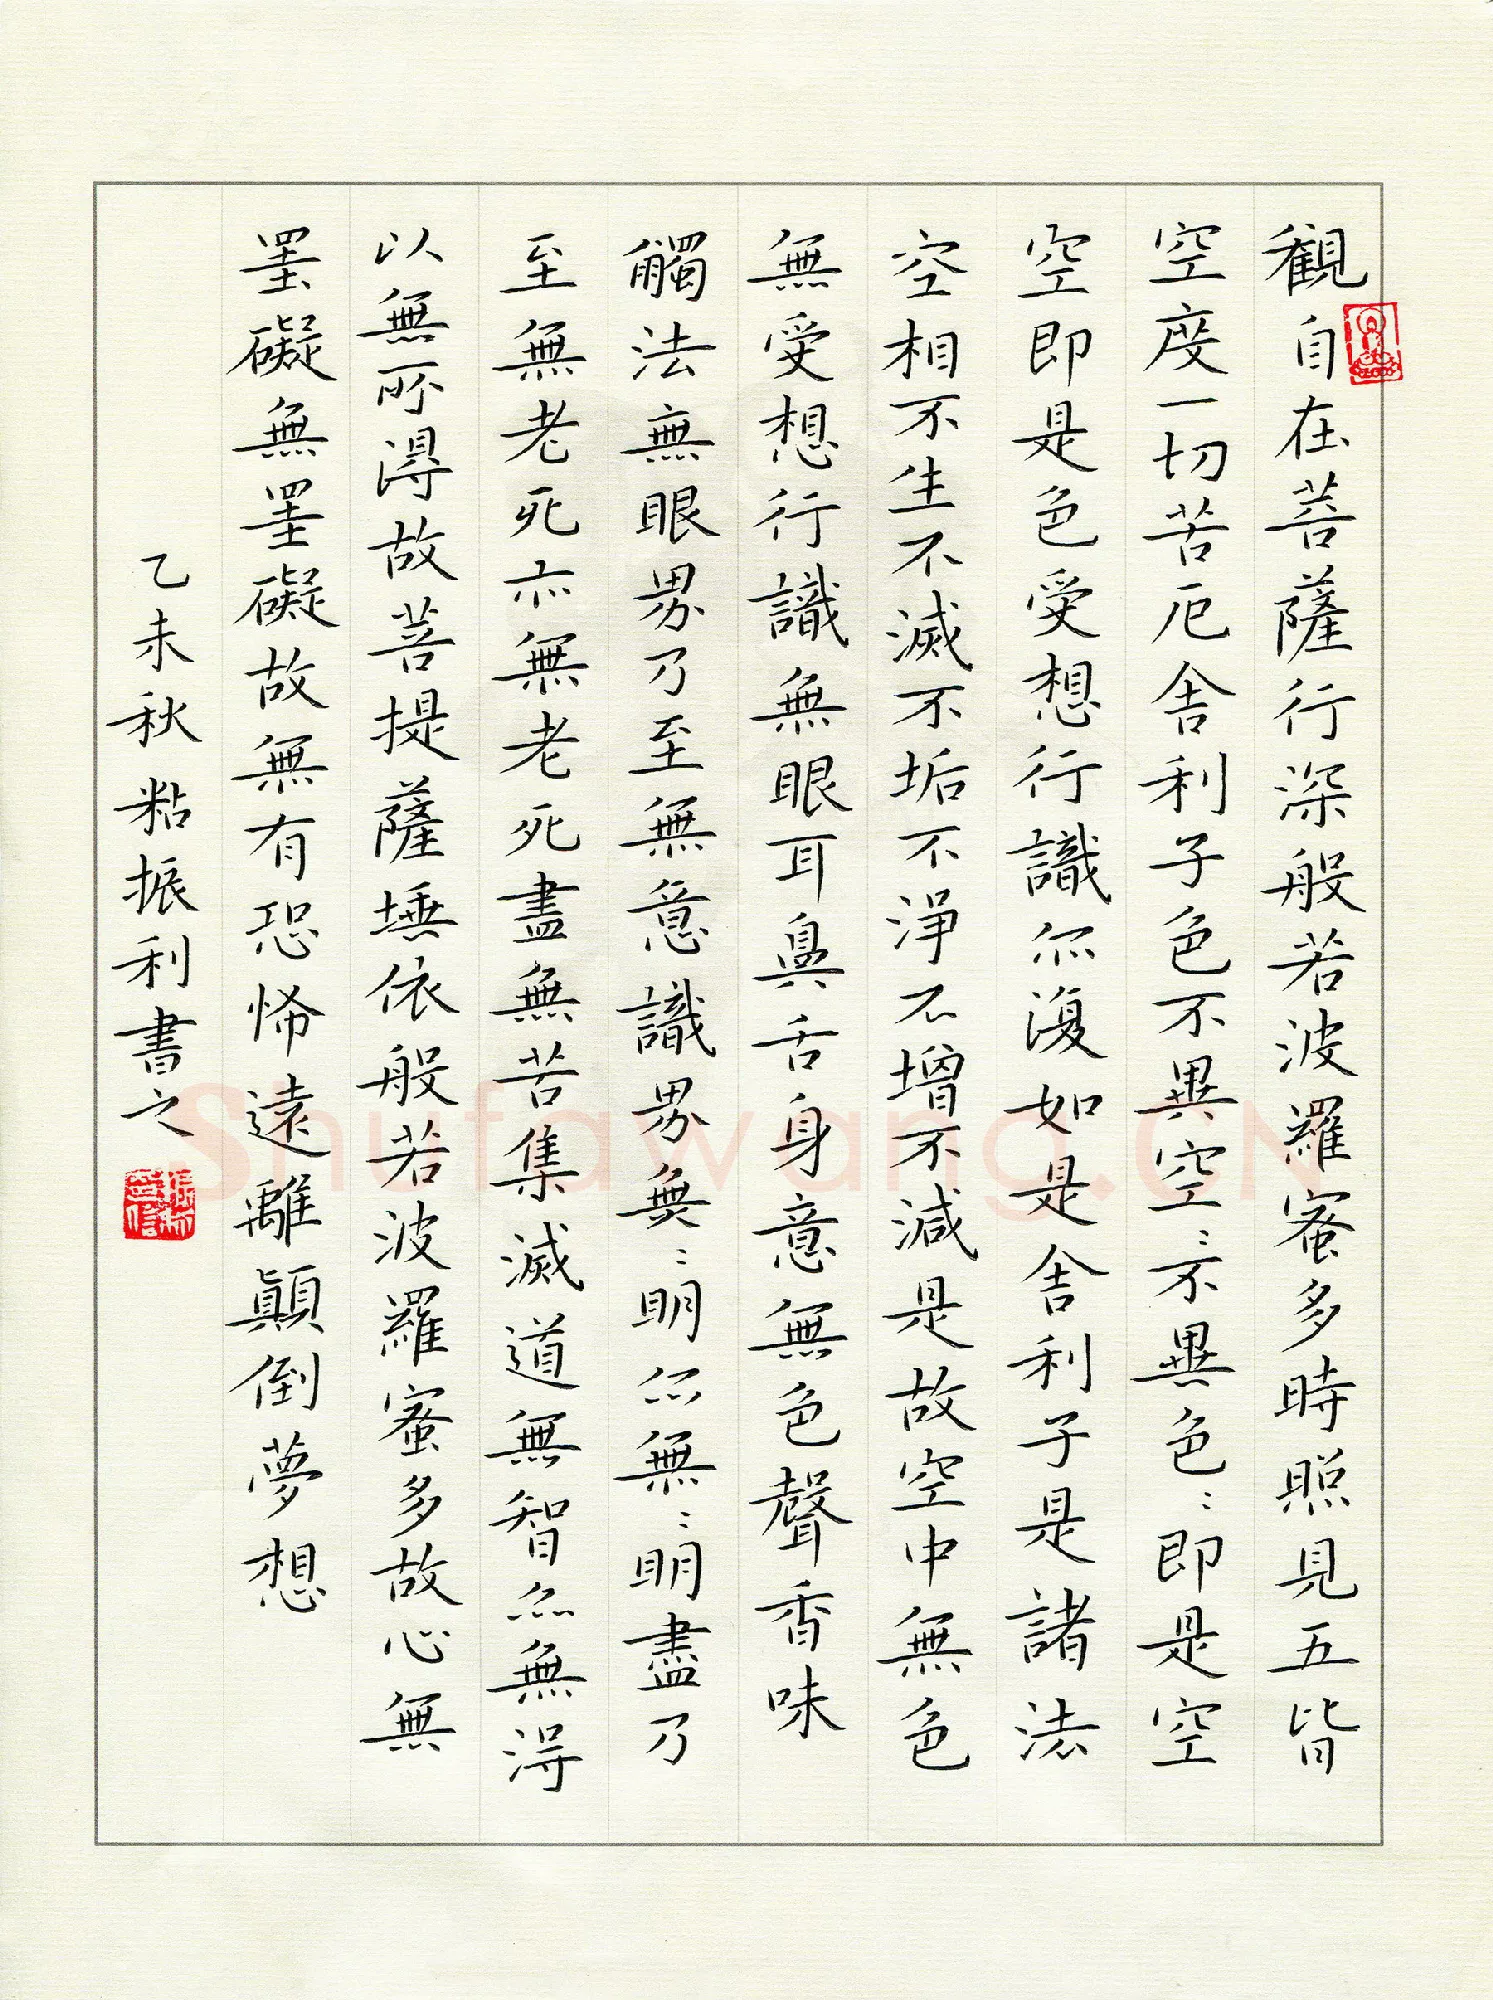 觀自在菩薩行深般若波羅蜜多時照見五皆
空度一切苦厄舍利子色不異空〻不異色〻即是空
空即是色受想行識亦復如是舍利子是諸法
空相不生不滅不垢不淨不增不減是故空中無色
無受想行識無眼耳鼻舌身意無色聲香味
觸法無眼界乃至無意識界無〻明亦無〻明盡乃
至無老死亦無老死盡無苦集滅道無智亦無得
以無所得故菩提薩埵依般若波羅蜜多故心無
罣礙無罣礙故無有恐怖遠離顛倒夢想
乙未秋粘振利書之
Shufawang.CN